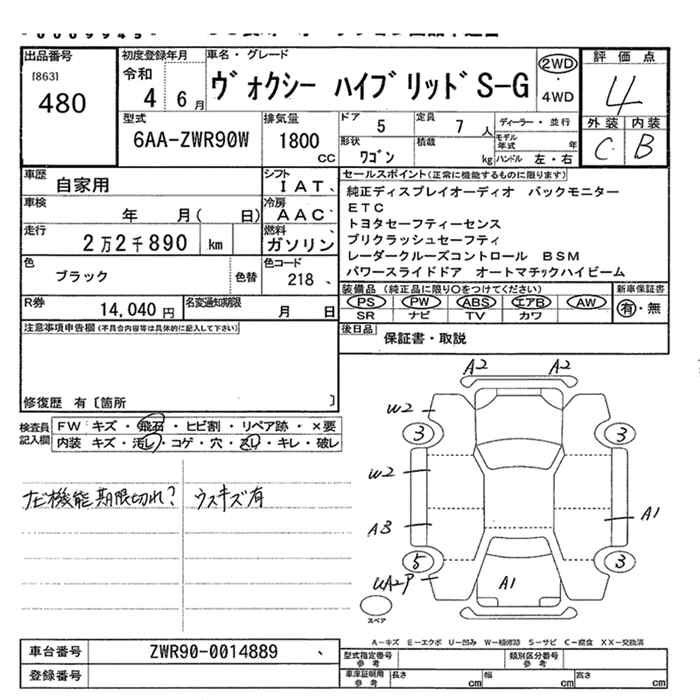 出品番号
[863]
480
初度登録年月
令和
4 6月
車名・グレード
ヴォクシー ハイブリッドS-G
2WD
・
4WD
評価点
4
外装 内装
C B
型式
6AA-ZWR90W
排気量
1800
CC
ドア
5
定員
7 人
ディーラー・並行
形状
ワゴン
積載
kg
モデル年式 年
ハンドル 左・右
車歴
自家用
シフト
IAT、
車検
年 月( 日)
冷房
AAC
走行
2万2千890 km
燃料
ガソリン
色
ブラック
色替
色コード
218 、
R券
14,040円
名変通知期限
月 日
セールスポイント(正常に機能するものに限ります)
純正ディスプレイオーディオ バックモニター
ETC
トヨタセーフティーセンス
プリクラッシュセーフティ
レーダークルーズコントロール BSM
パワースライドドア オートマチックハイビーム
装備品(純正品に限り○をつけてください)
PS PW ABS エアB AW
SR ナビ TV カワ
新車保証書
有・無
後日品
保証書・取説
注意事項申告欄(不具合内容等は具体的に記入して下さい)
修復歴 有〔箇所 〕
検査員記入欄
FW キズ・飛石・ヒビ割・リペア跡・×要
内装 キズ・汚レ・コゲ・穴・スレ・キレ・破レ
ナビ機能期限切れ?
ウスキズ有
A2 A2
W2
3 3
W2
A3
A1
5 3
UA2P
A1
スペア
A-キズ E-エクボ U-凹み W-補修跡 S-サビ C-腐食 XX-交換済
車台番号
ZWR90-0014889 、
登録番号
型式指定番号
参考
類別区分番号
参考
車庫証明用
参考
長さ cm
幅 cm
高さ cm